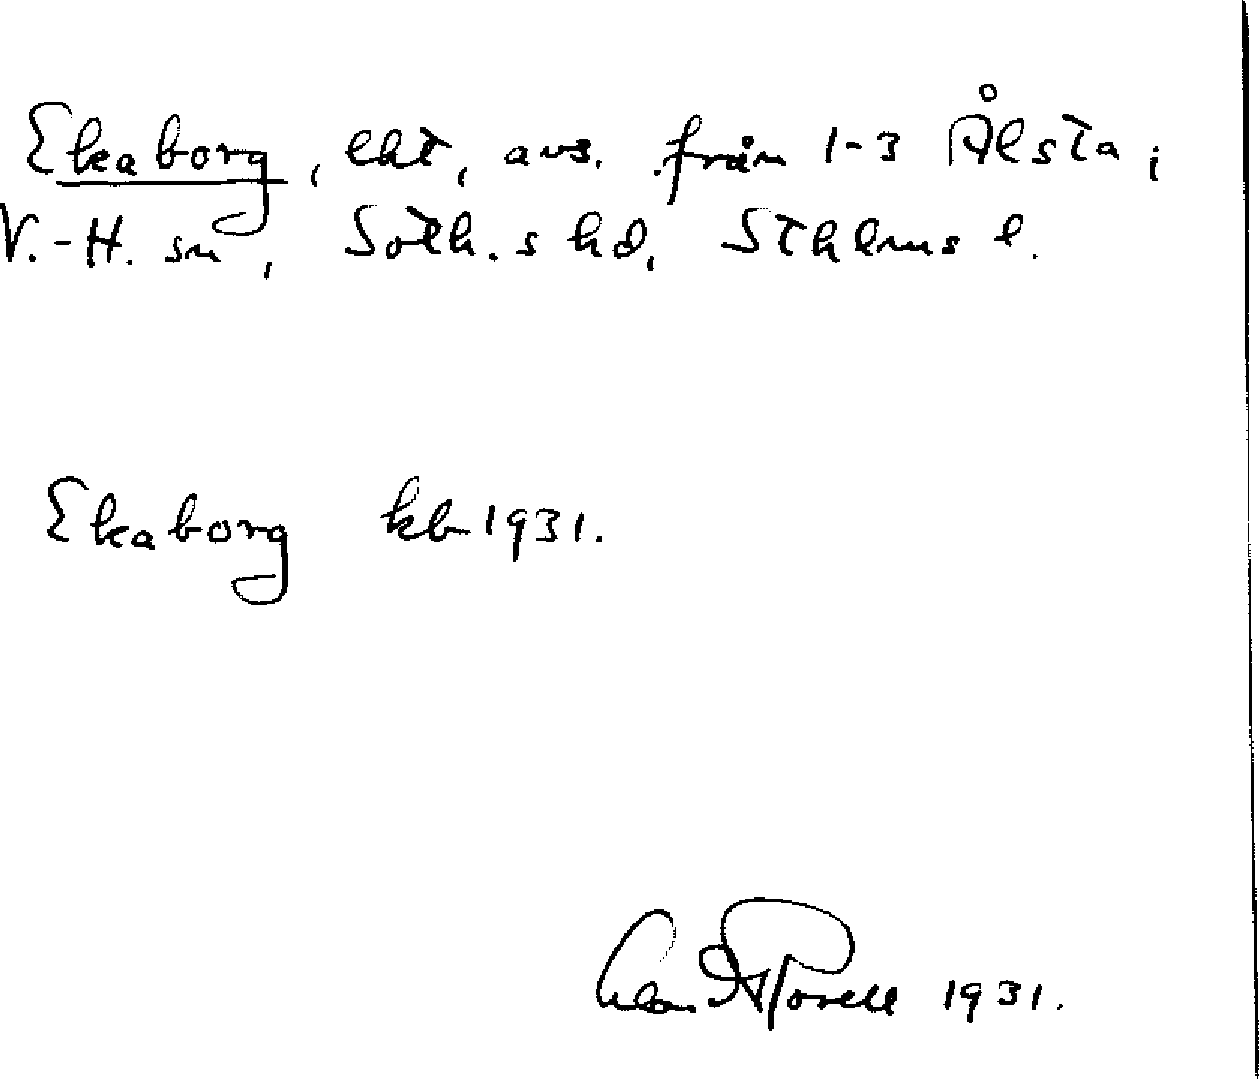 Ekaborg, lht, avs. från 1-3 Ålsta i
V.-H. sn, Soth. s hd, Sthlms l.
Ekaborg kb 1931.
1931.